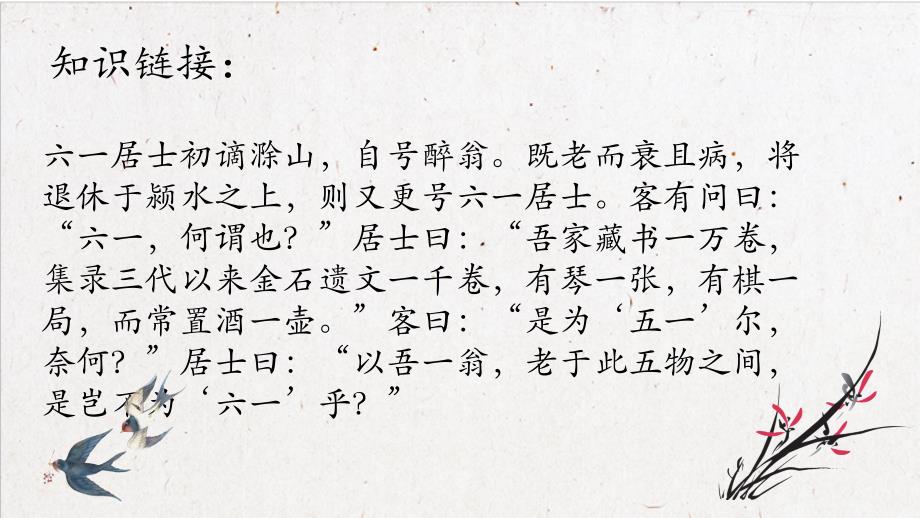 知识链接：
六一居士初谪滁山，自号醉翁。既老而衰且病，将
退休于颍水之上，则又更号六一居士。客有问曰：
“六一，何谓也？”居士曰：“吾家藏书一万卷，
集录三代以来金石遗文一千卷，有琴一张，有棋一
局，而常置酒一壶。”客曰：“是为‘五一’尔，
奈何？”居士曰：“以吾一翁，老于此五物之间，
是岂不为‘六一’乎？”